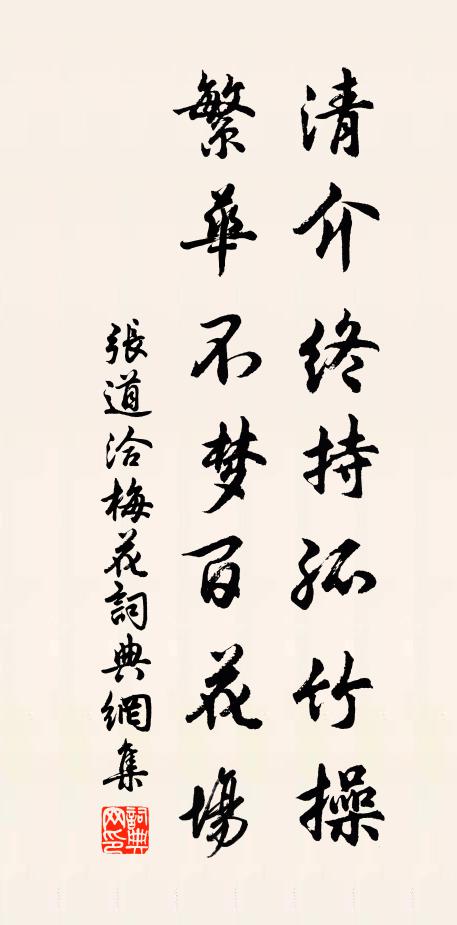 清介终持孤竹操
繁华不梦百花場
張道洽梅花詞典網集
詞典
网印